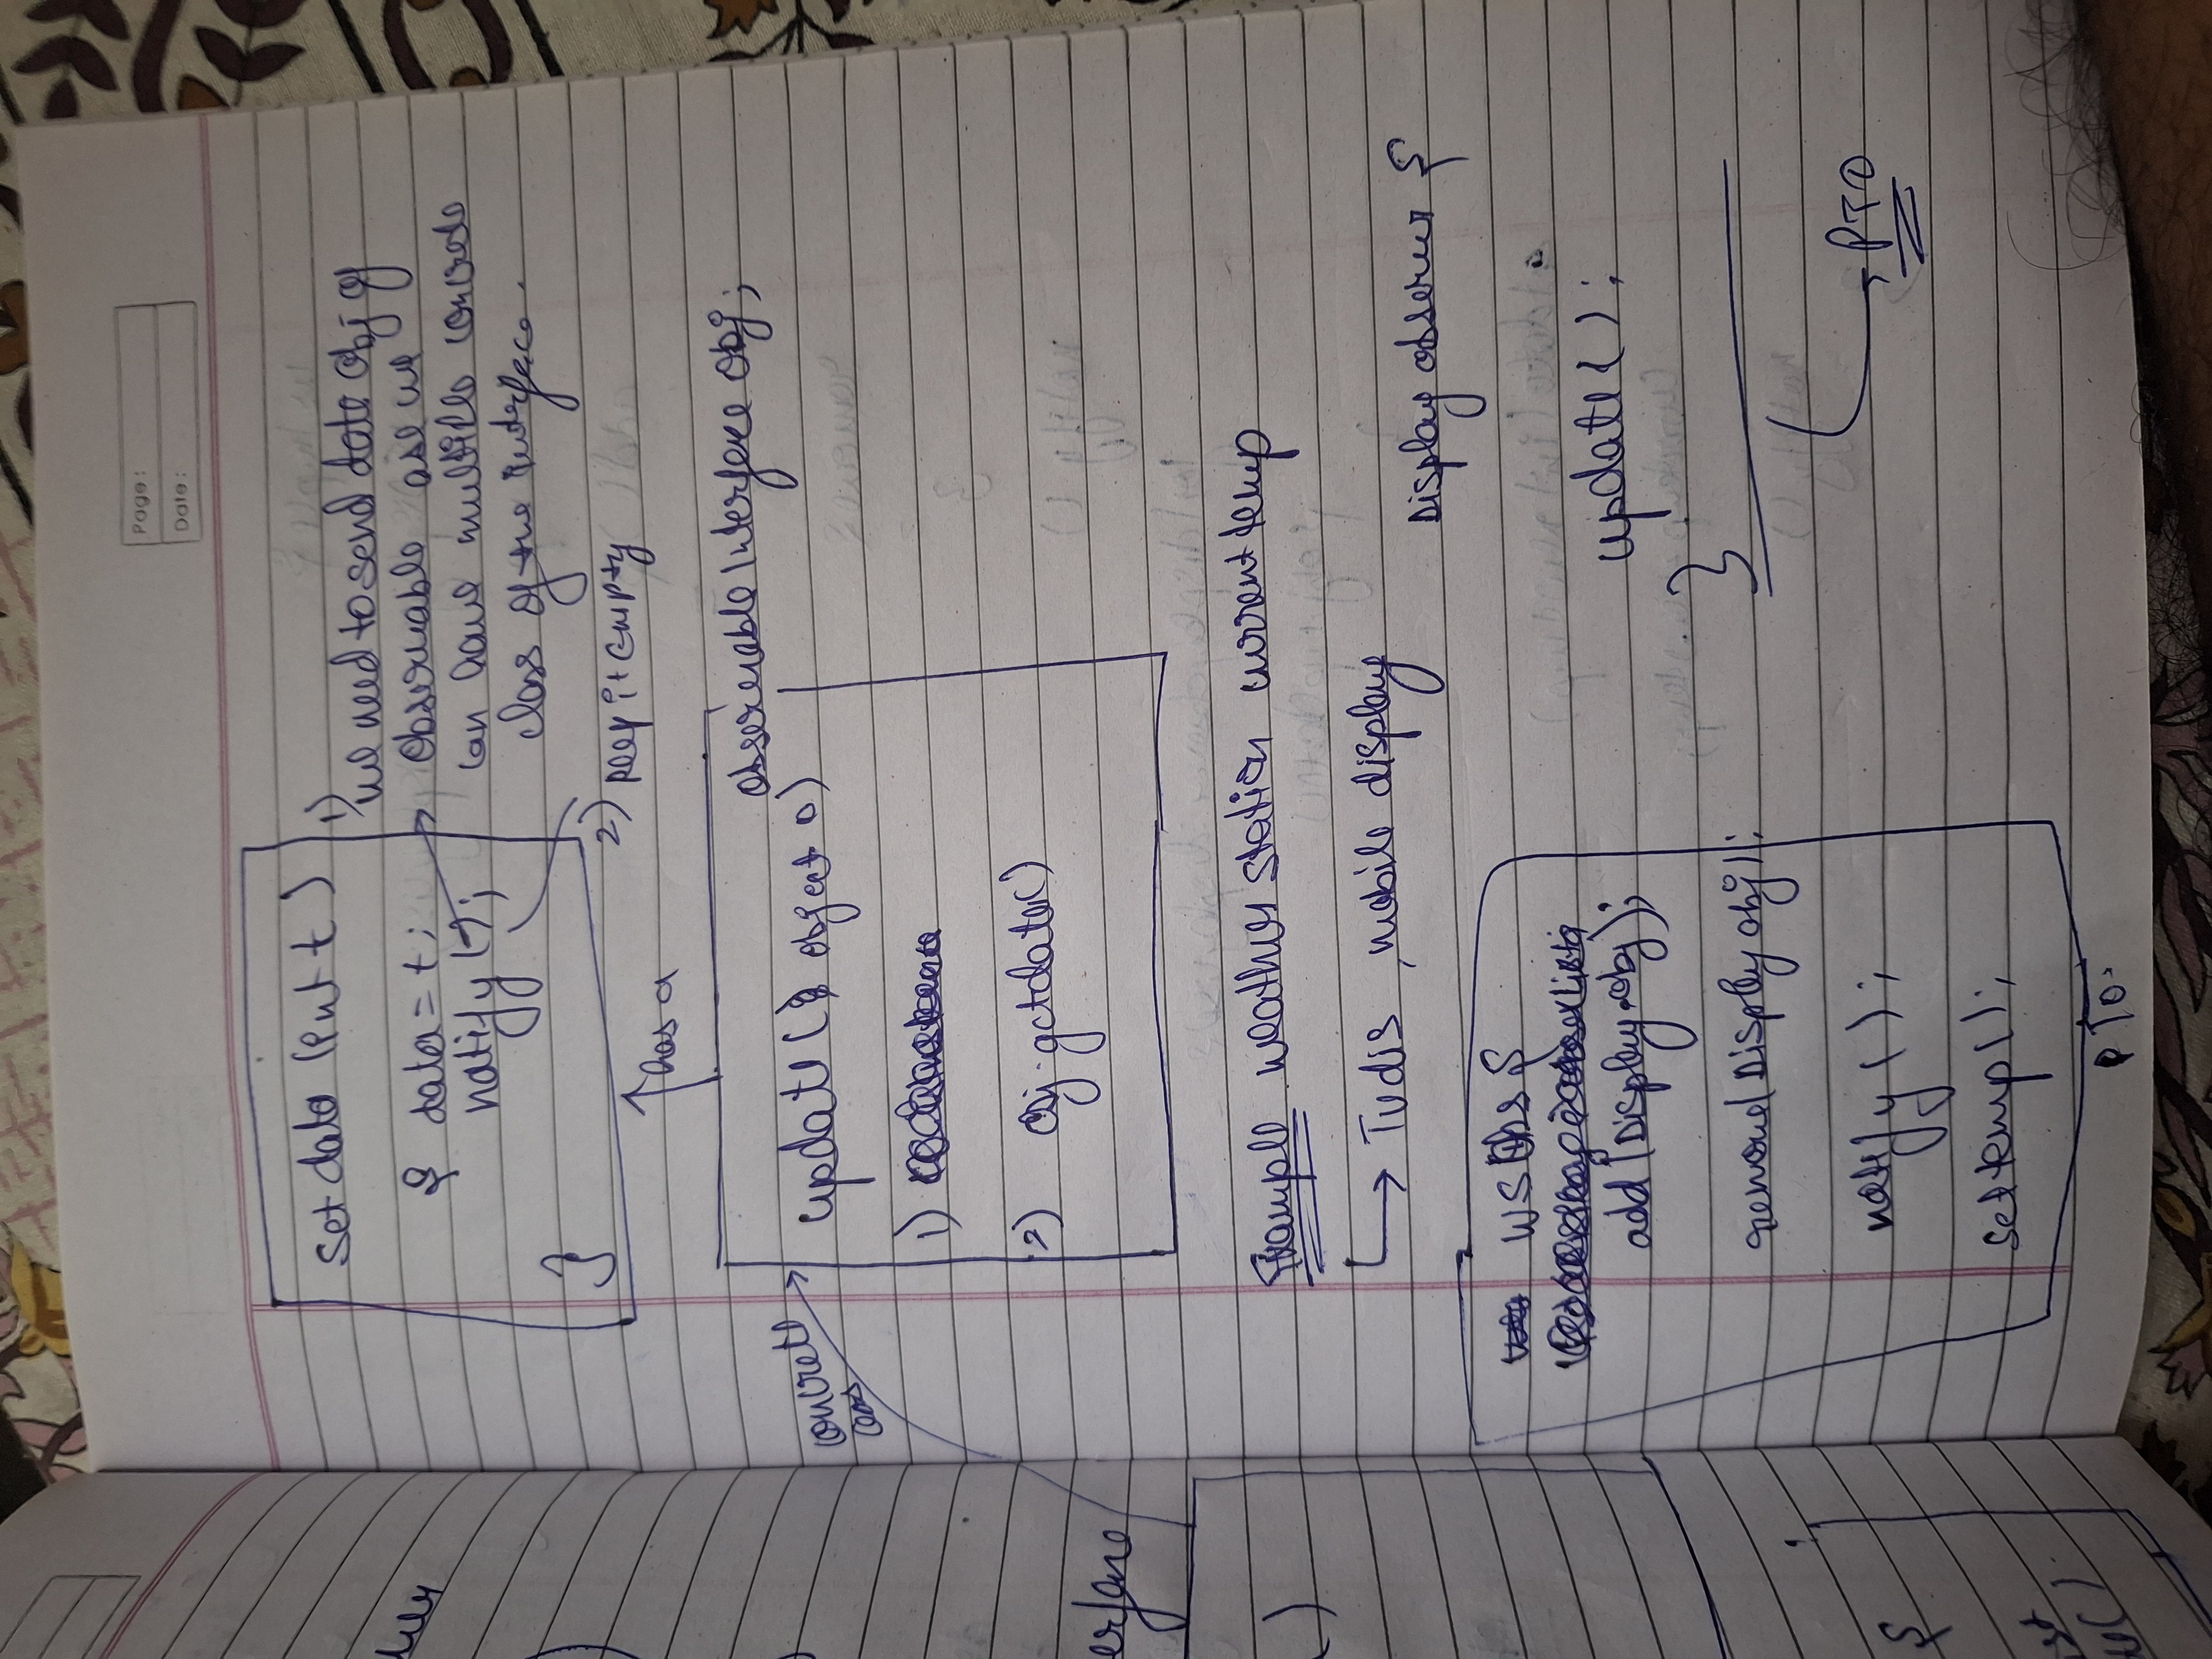 Page:
Date:
Set data (int t)
{ data = t;
notify( );
}
1) we need to send data obj of
observable ase we
can have multiple concrete
class of the interface.
2) keep it empty
has a
observable interface obj;
concrete
class
update( object o)
1)
2) obj.getdata()
Example weather station current temp
→ Tv dis, mobile display
WS Obs {
add (Display obj);
remove (Display obj);
notify ( );
set temp( );
PTO.
Display observer {
update ( );
}
PTO
erface
( )
{